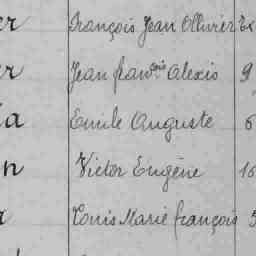 er François Jean Ollivier
er Jean fran^çois Alexis 9
la Emile Auguste 6
n Victor Eugène 16
r Louis Marie françois 5